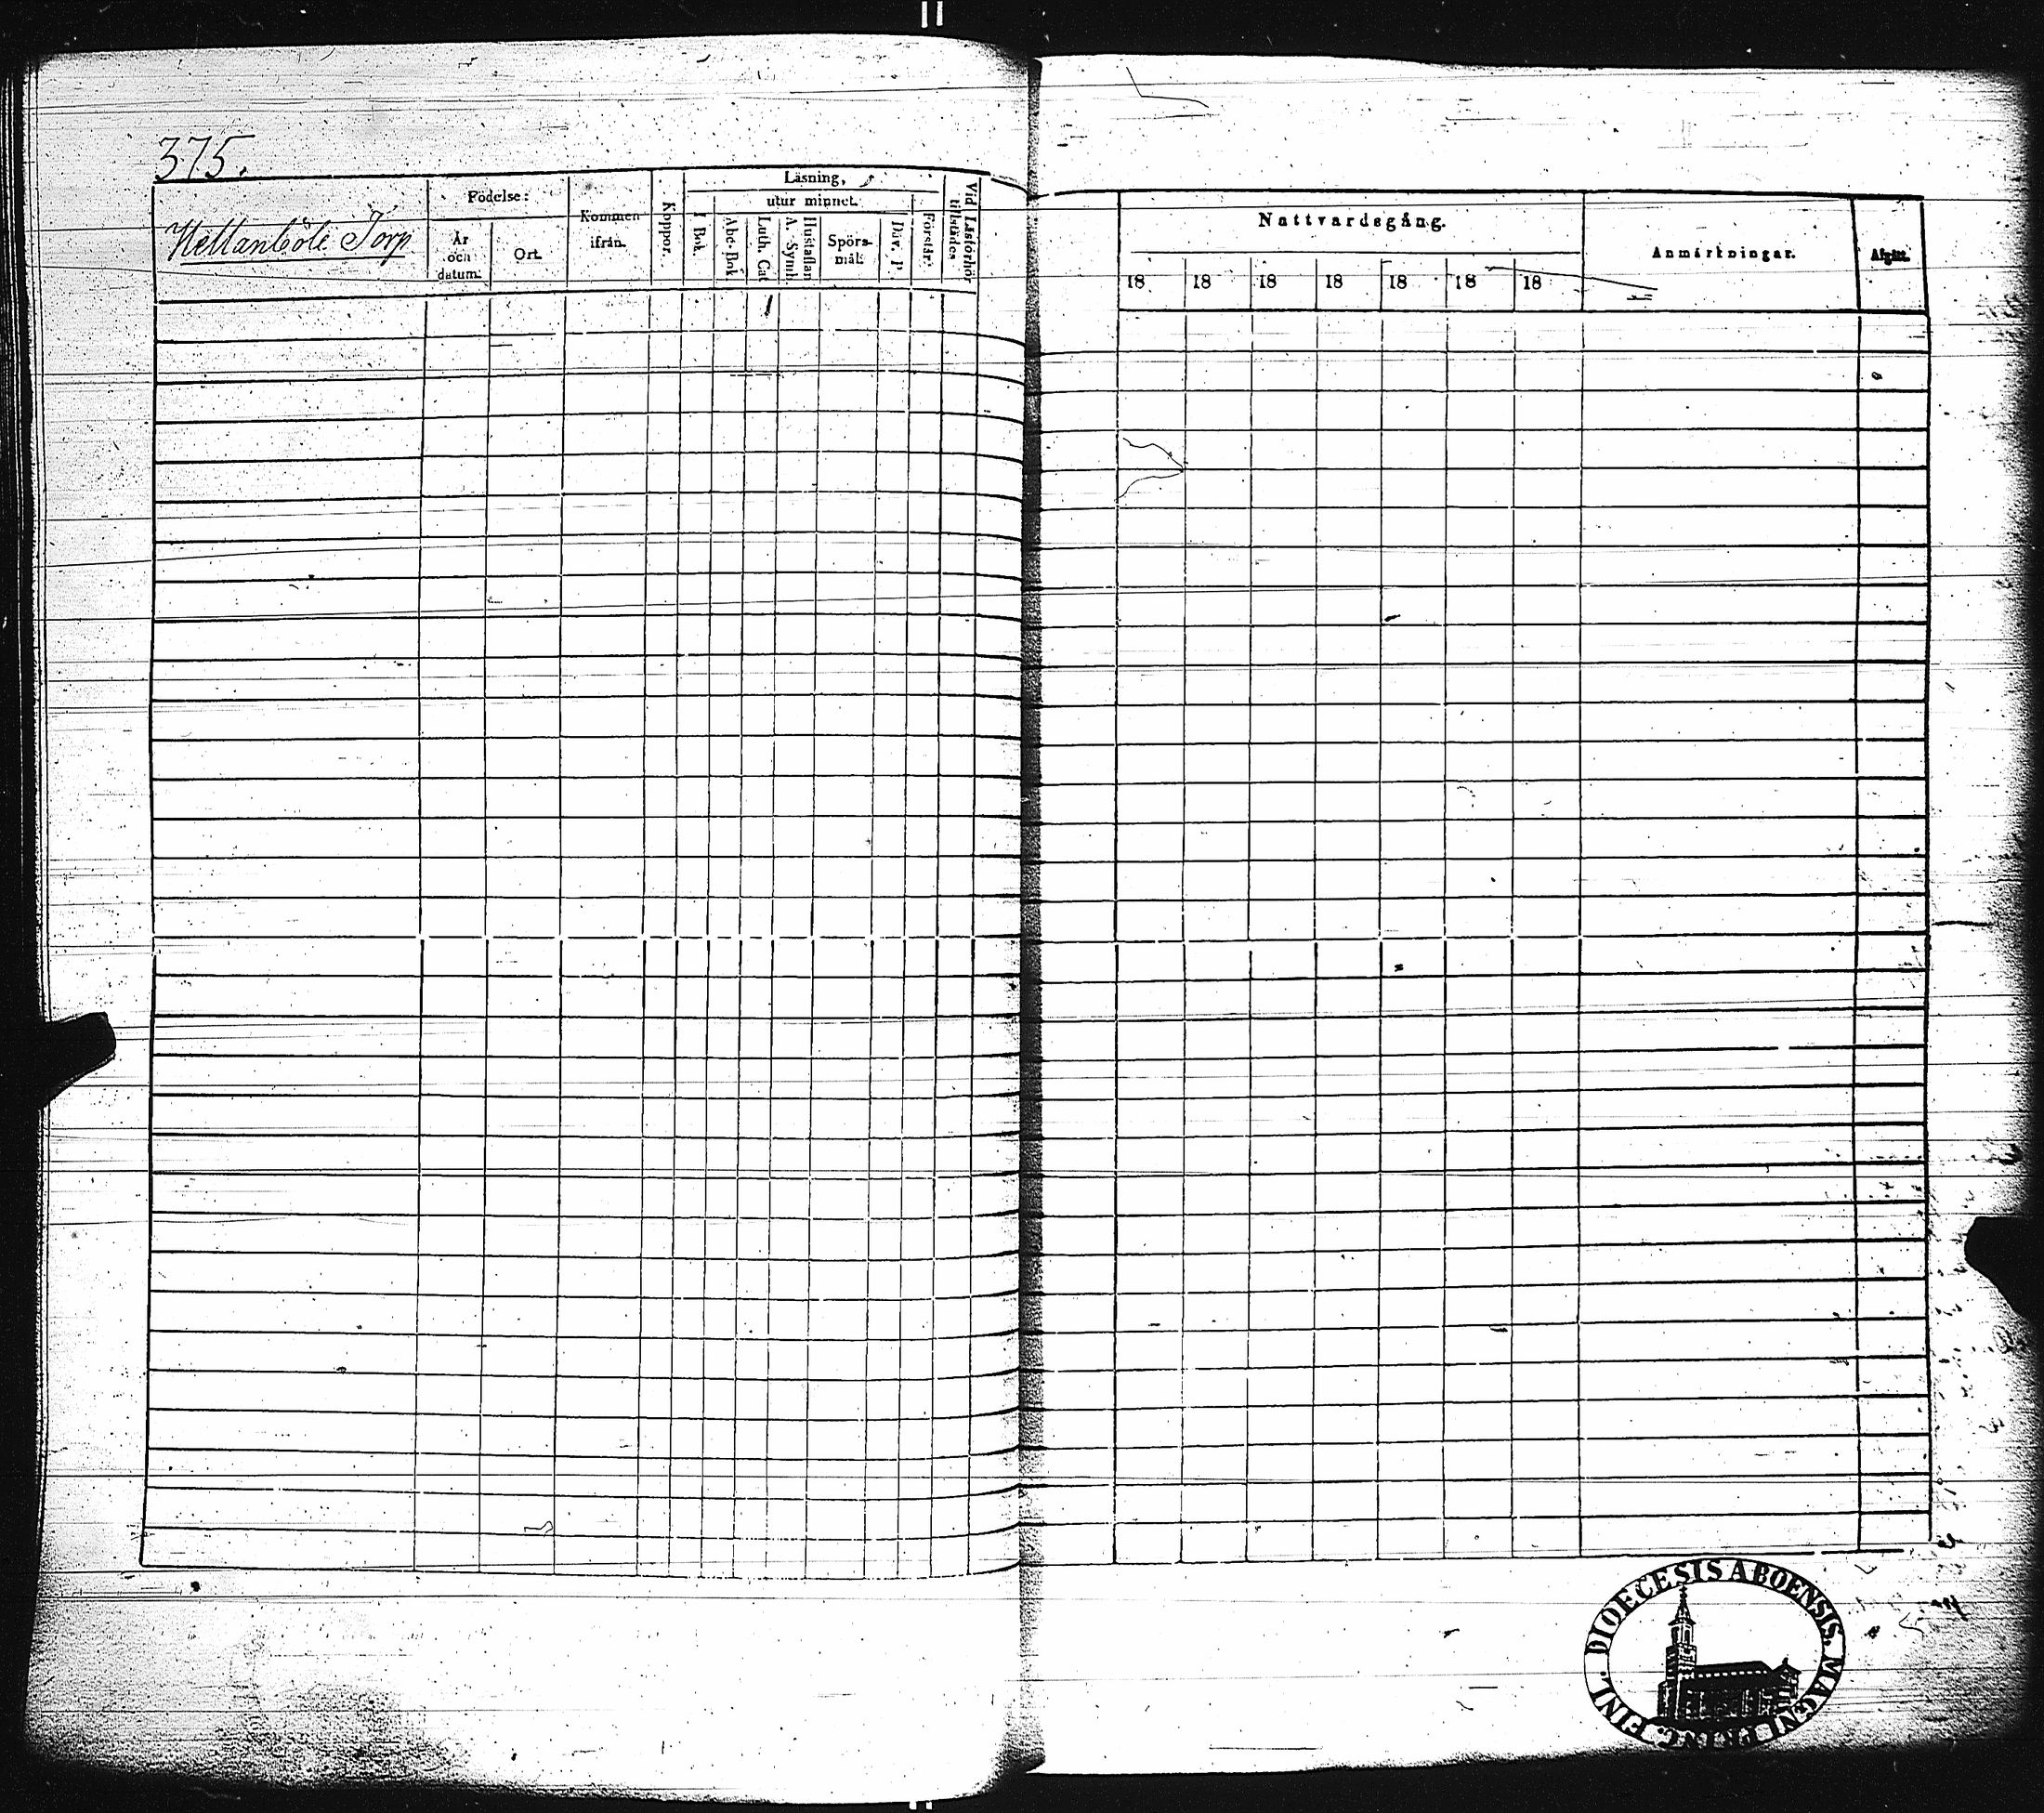 375.
Hellanböle Torp
Födelse:
År och datum.
Ort.
Kommen ifrån.
Koppor.
Läsning,
utur minnet.
I Bok.
Abc-Bok
Luth. Cat
A. Symb.
Hustaflan
Spörs-mål.
Div. P.
Förstår.
Vid Läsförhör tillstädes
Nattvardsgång.
18 18 18 18 18 18 18
Anmärkningar.
Afgått.
DIOECESIS ABOENSIS, MAGNI PRINC. FINL.